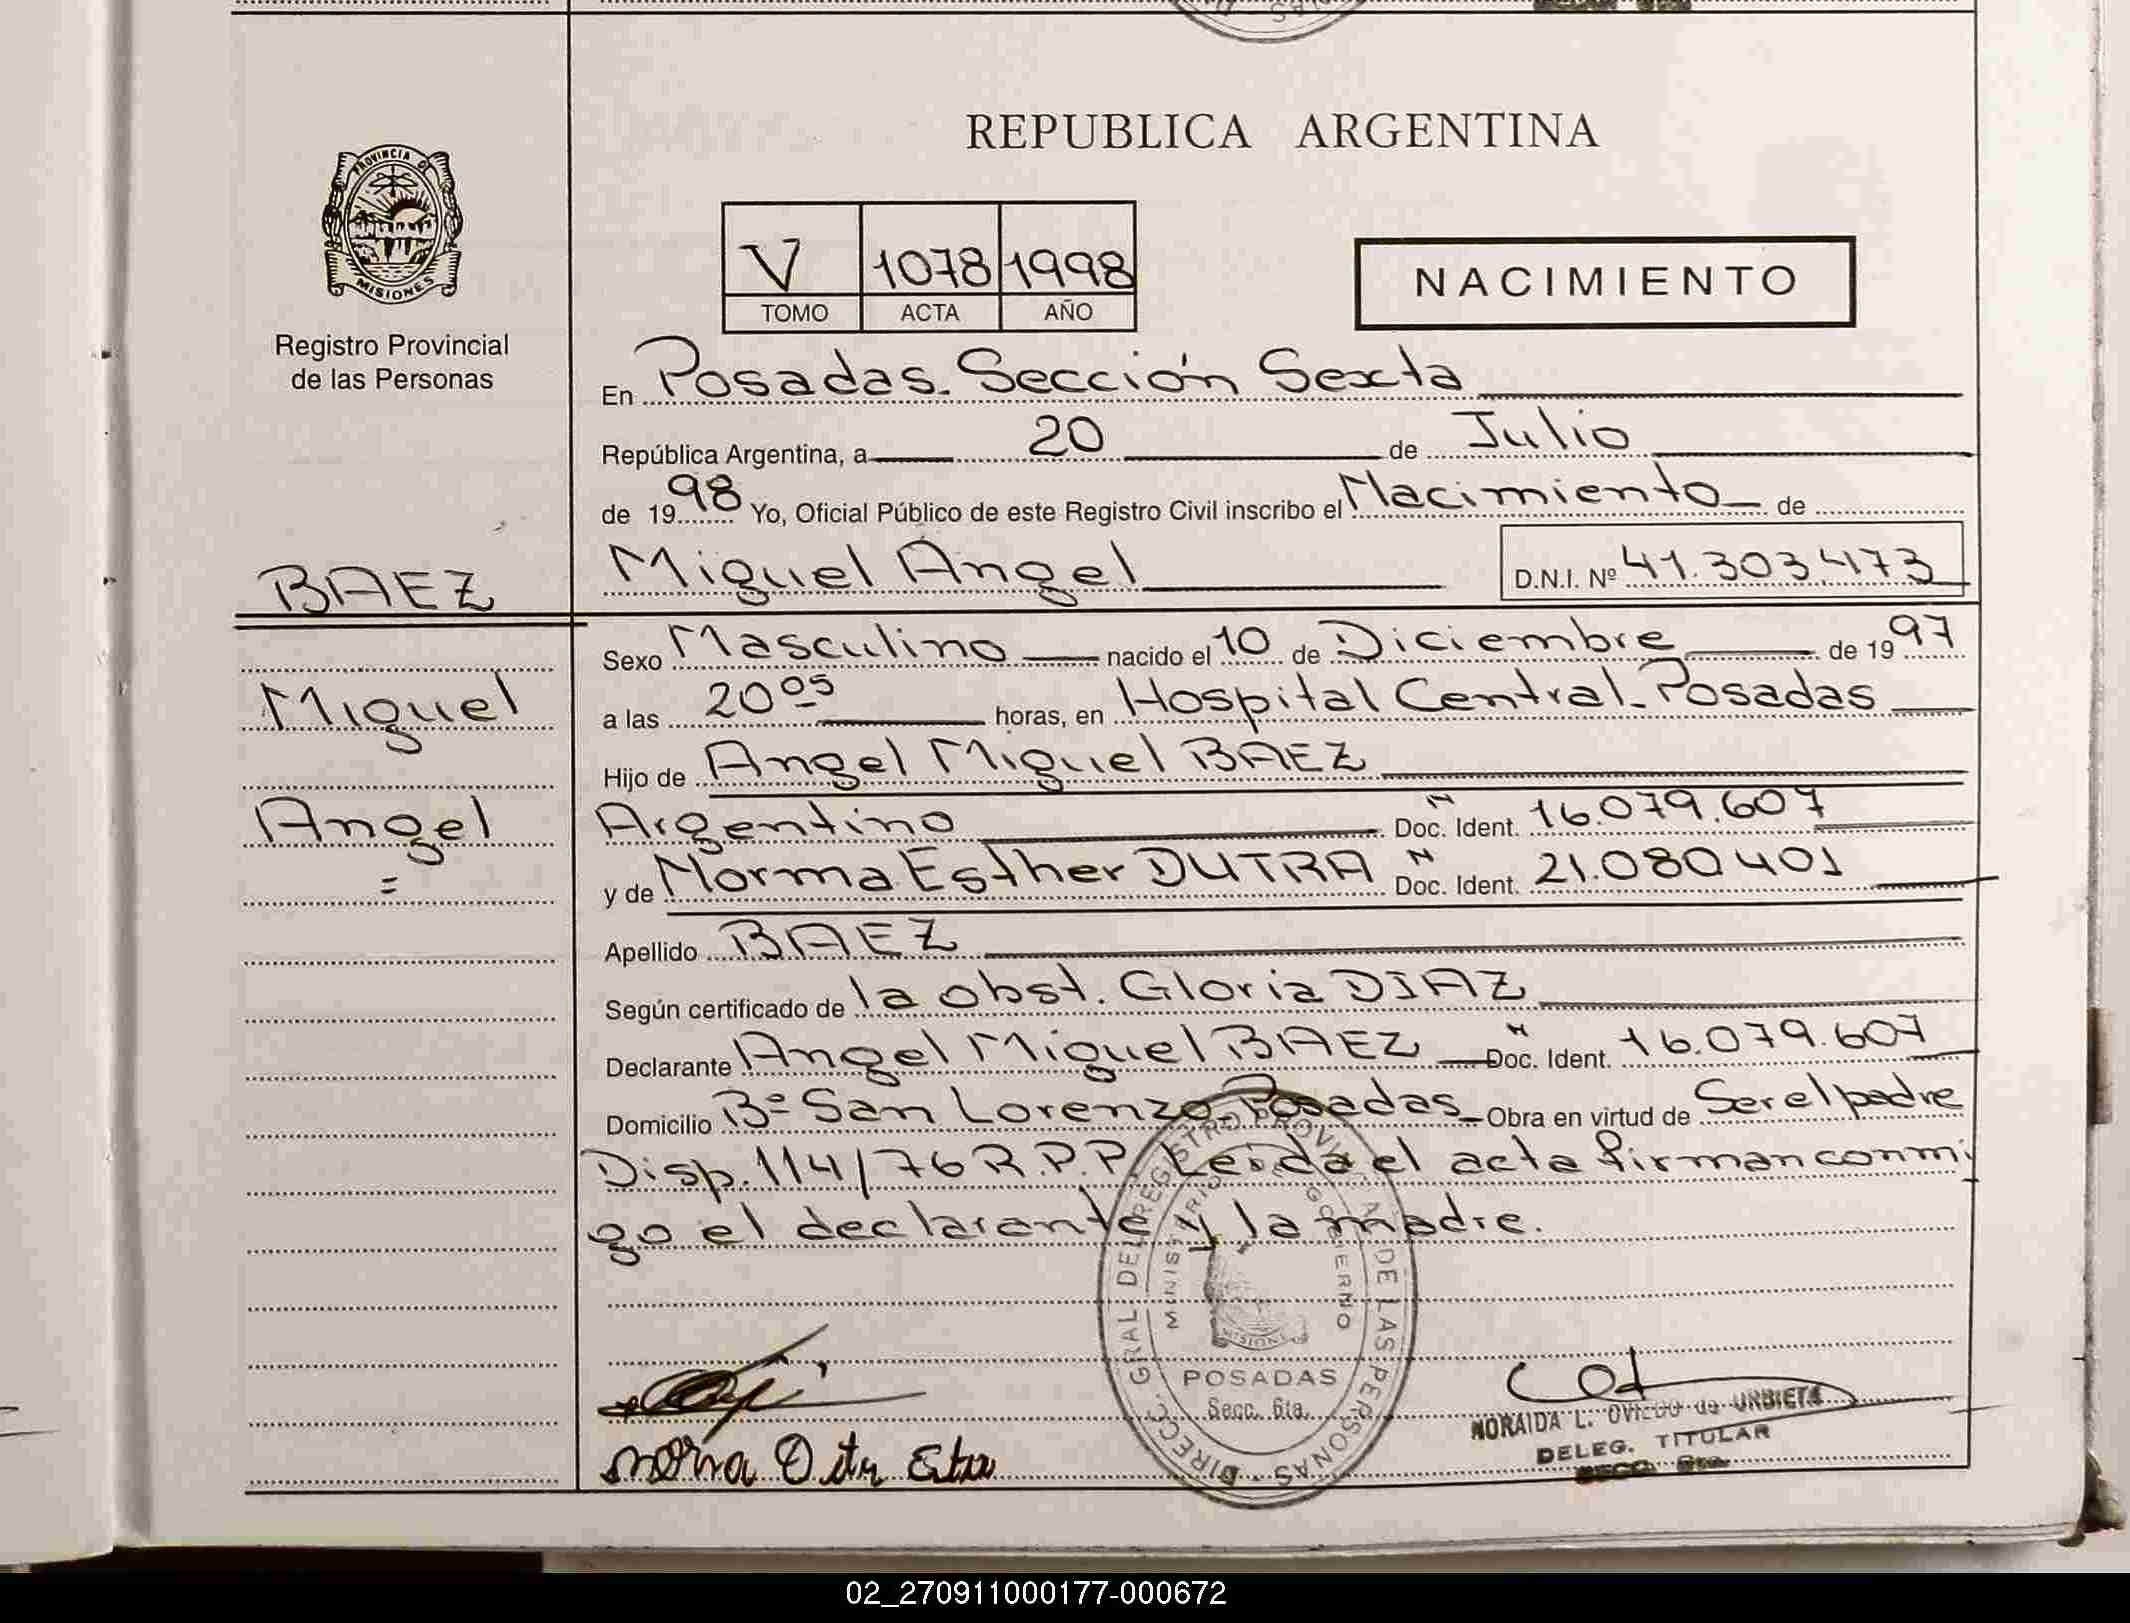 REPUBLICA ARGENTINA
PROVINCIA DE
MISIONES
Registro Provincial
de las Personas
V 1078 1998
TOMO ACTA AÑO
NACIMIENTO
En Posadas. Sección Sexta
República Argentina, a 20 de Julio
de 1998 Yo, Oficial Público de este Registro Civil inscribo el Nacimiento de
BAEZ
Miguel Angel D.N.I. Nº 41.303.473
Sexo Masculino nacido el 10 de Diciembre de 1997
Miguel
a las 20 05 horas, en Hospital Central. Posadas
Hijo de Angel Miguel BAEZ
Angel
Argentino Doc. Ident. 16.079.607
y de Norma Esther DUTRA Doc. Ident. 21.080401
Apellido BAEZ
Según certificado de la obst. Gloria DIAZ
Declarante Angel Miguel BAEZ Doc. Ident. 16.079.607
Domicilio Bº San Lorenzo. Posadas Obra en virtud de Ser el padre
Disp. 114/76 R.P.P. Leída el acta firman conmi
go el declarante y la madre.
DIRECC. GRAL DEL REGISTRO PROVINCIAL DE LAS PERSONAS
MINISTERIO GOBIERNO
MISIONES
POSADAS
Secc. 6ta.
NORAIDA L. OVIEDO de URBIETA
DELEG. TITULAR
SECC. 6ta.
02_270911000177-000672